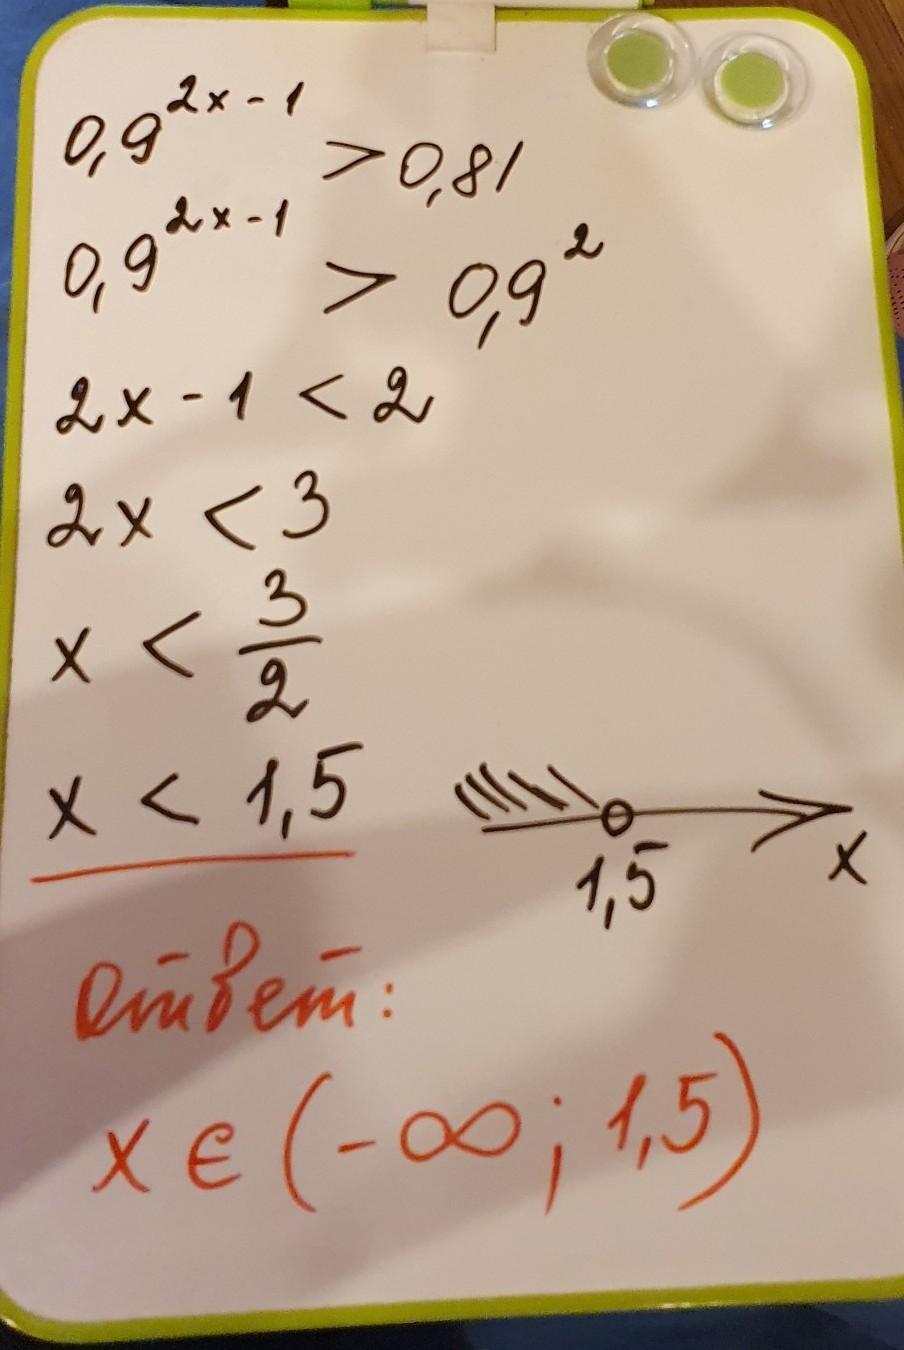 0,9^{2x-1} > 0,81
0,9^{2x-1} > 0,9^2
2x - 1 < 2
2x < 3
x < \frac{3}{2}
x < 1,5
1,5
x
Ответ:
x ∈ (-∞; 1,5)